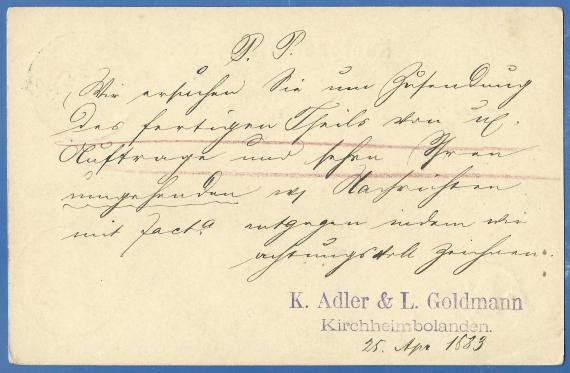 P. P.
Wir ersuchen Sie um Zusendung
des fertigen Theils von uns.
Auftrage und sehen Ihren
umgehenden Nachrichten
mit Facta entgegen indem wir
achtungsvoll zeichnen.
K. Adler & L. Goldmann
Kirchheimbolanden.
25. Apr 1883